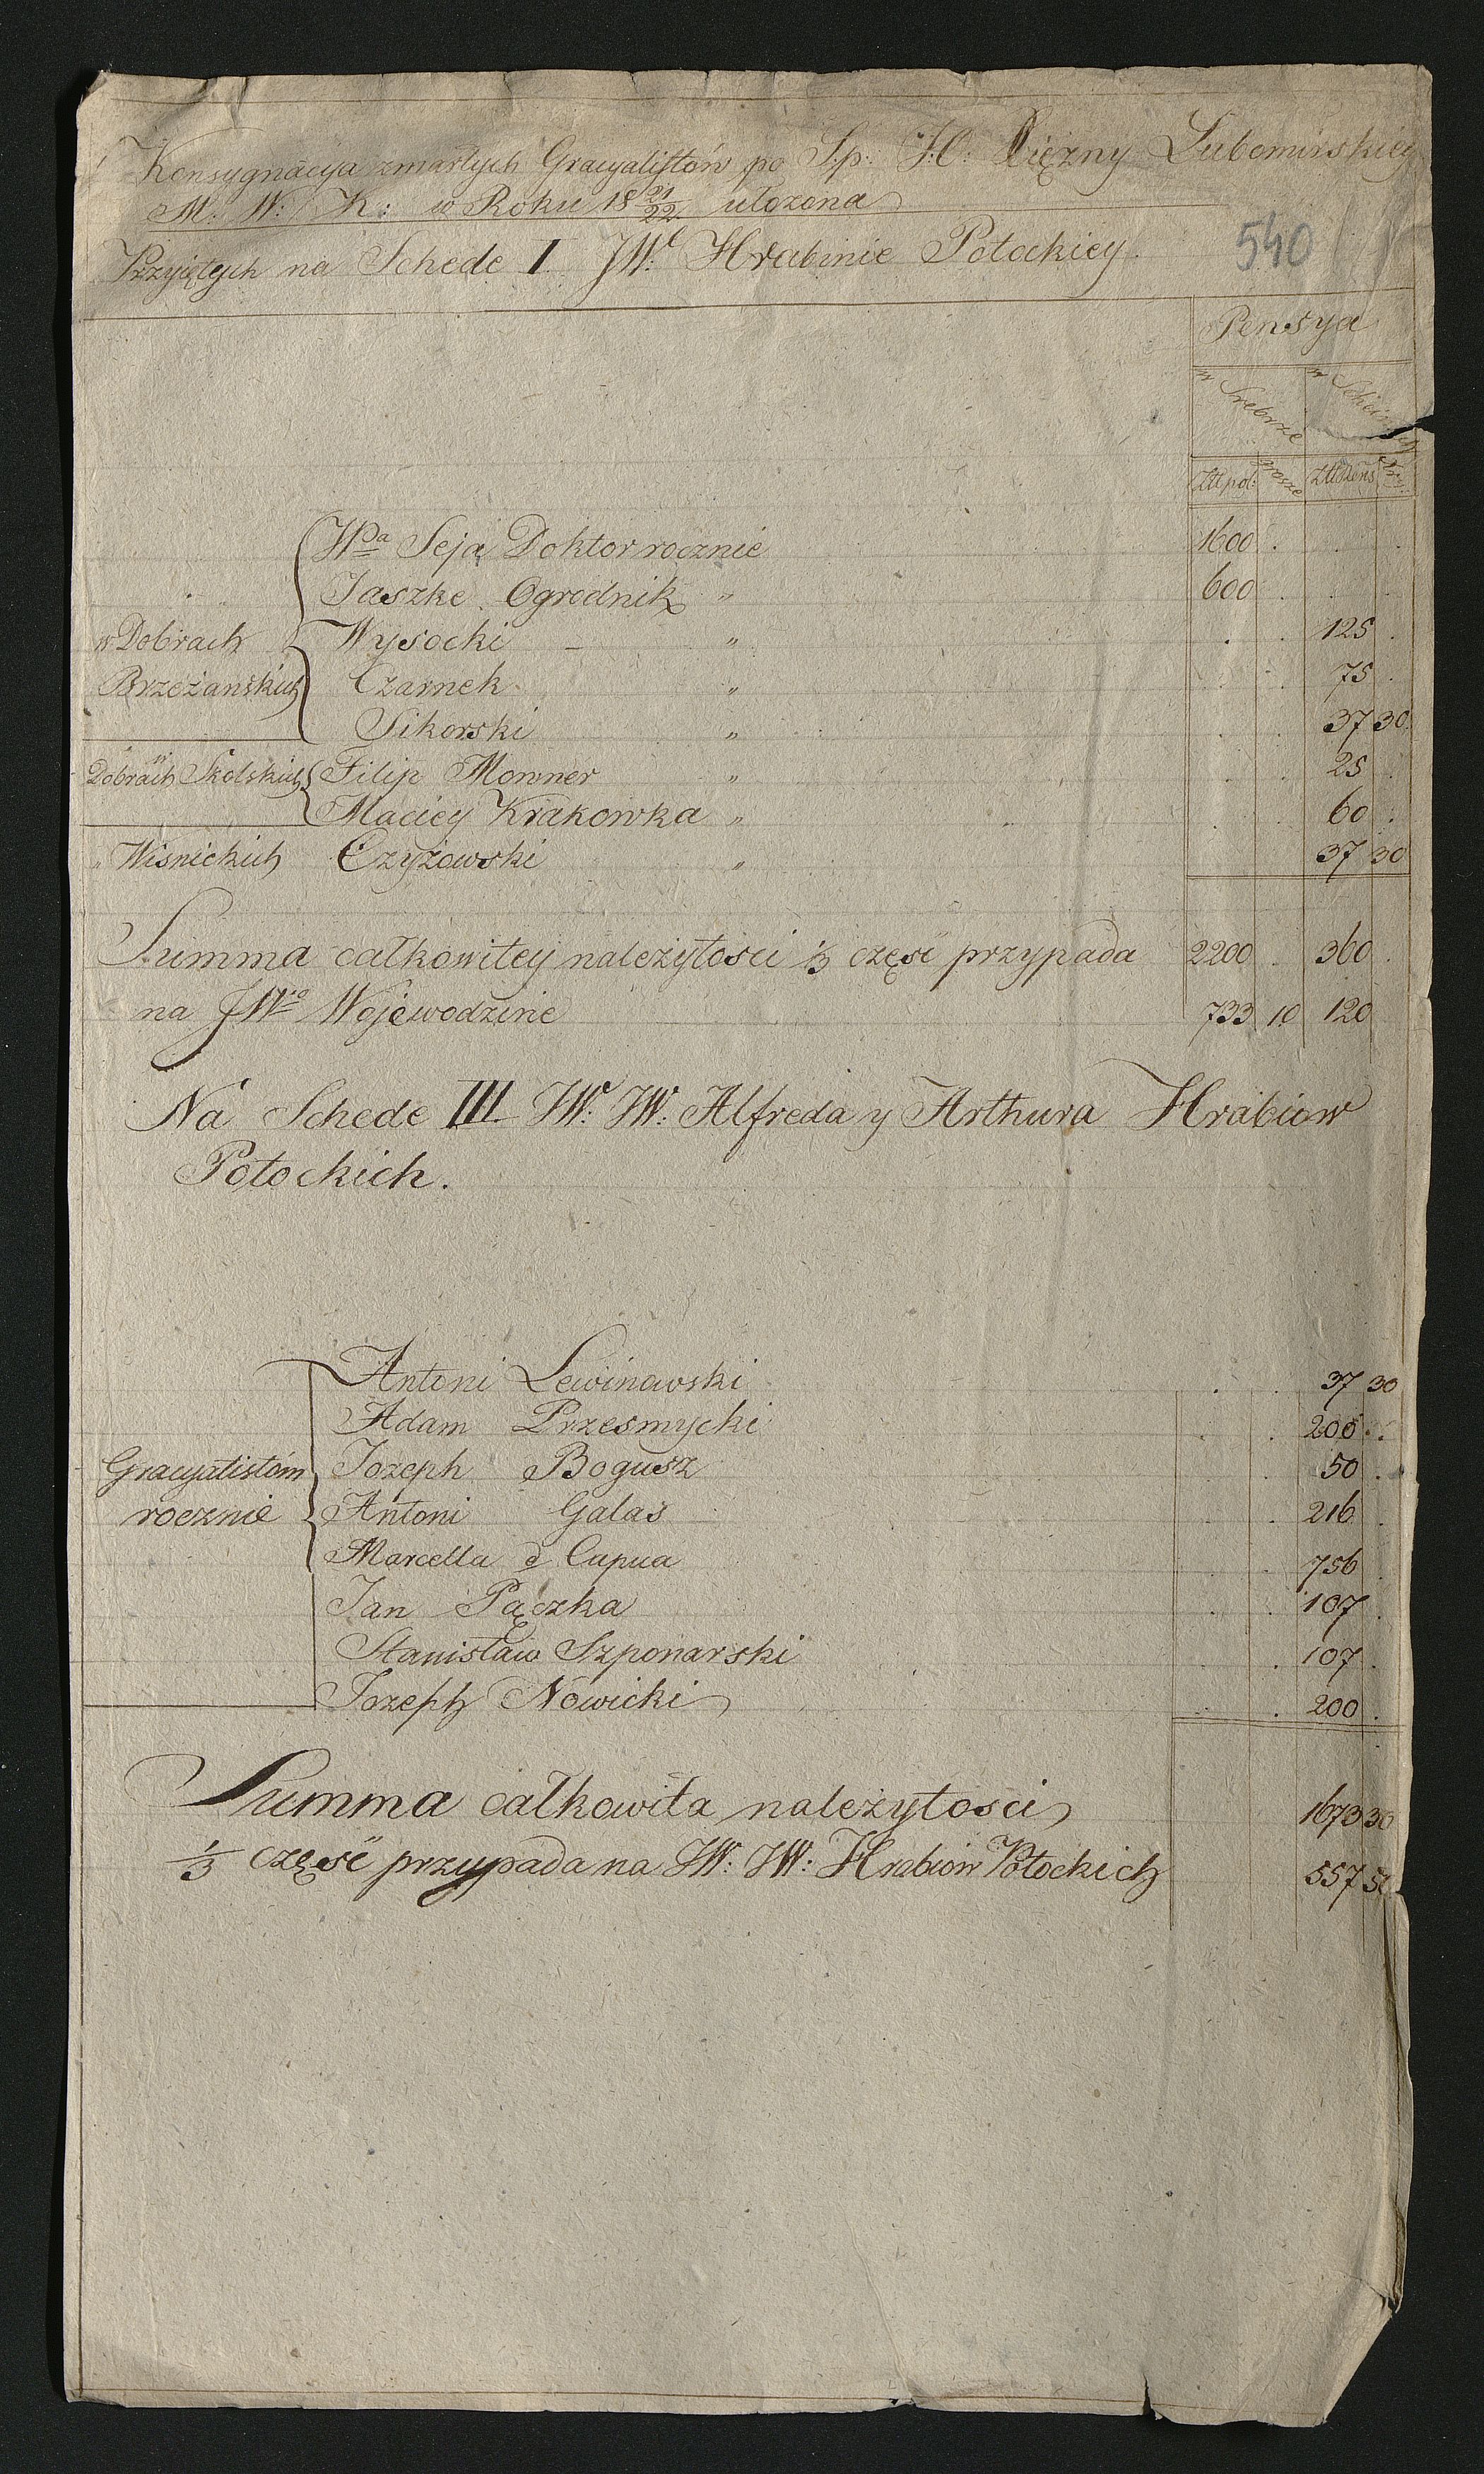 Konsygnacya zmarłych Gracyalistów po S.p: J: O: Xiężny Lubomirskiey
M: W: K: w Roku 18 21/22 ułożona
Przyiętych na Schede I JW. Hrabinie Potockiey.
540
Pensya
w Srebrze w
Złł pol: grosze Złł Reńs
Wa Seja Doktor rocznie 1600 . . .
Jaszke Ogrodnik " 600 . . .
w Dobrach Wysocki - " . . 125 .
Brzeżanskich Czarnek " . . 75 .
Sikorski " . . 37 30
w Dobrach Skolskich Filip Mowner " . . 25 .
Maciey Krakowka " . . 60 .
" Wisnickich Czyżowski " 37 30
Summa całkowitey należytosci 1/3 część przypada 2200 . 360 .
na JW Wojewodzine 733 10 120
Na Schede III JW: JW: Alfreda y Arthura Hrabiow
Potockich.
Antoni Lewinowski . . 37 30
Adam Przesmycki . . 200 .
Gracyalistom Jozeph Bogusz . . 50 .
rocznie Antoni Galas . . 216 .
Marcella d Capua . . 756 .
Jan Pączka . . 107 .
Stanisław Szponarski . . 107 .
Jozeph Nowicki . . 200 .
Summa całkowita należytosci 1673 30
1/3 część przypada na JW: JW: Hrabiow Potockich 557 50